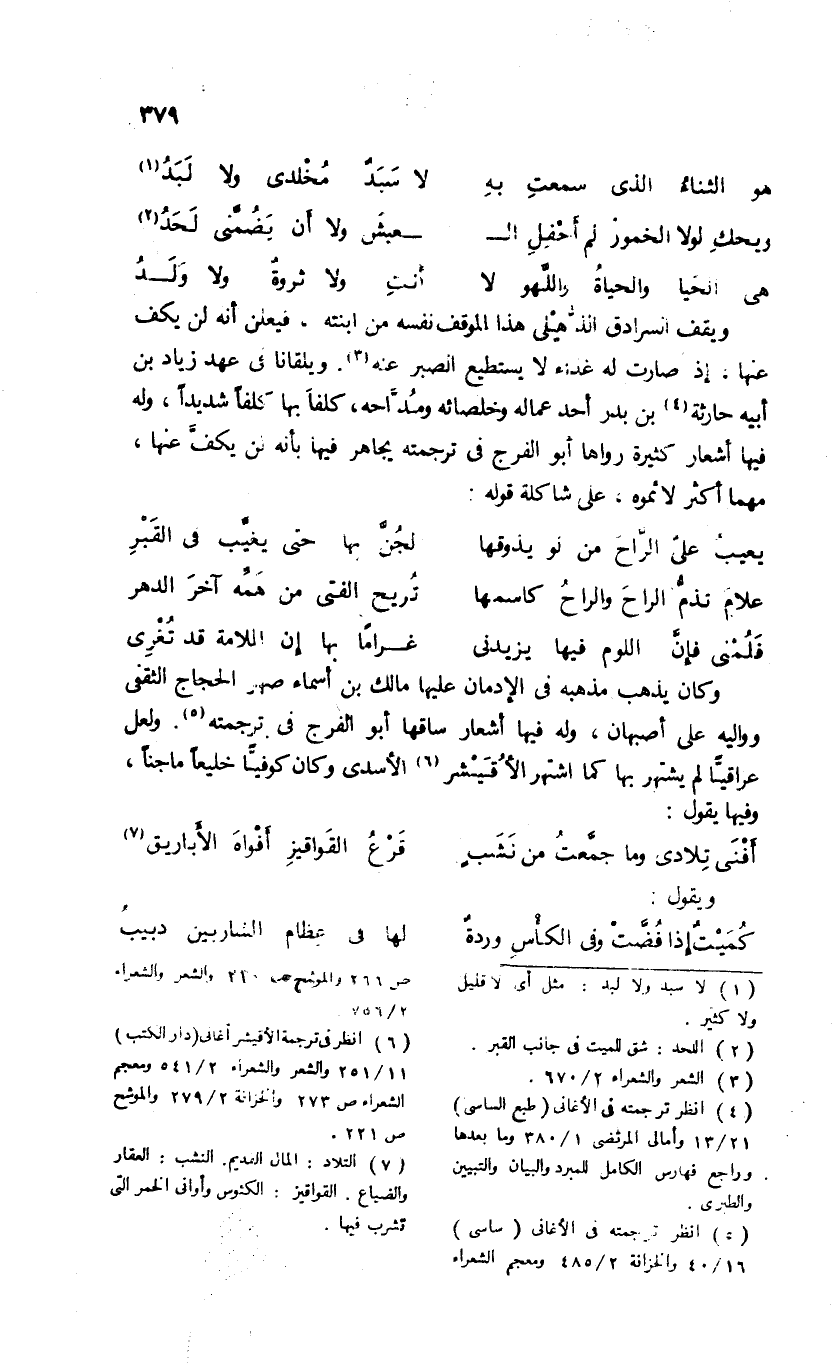 ٣٧٩
هو الثناءُ الذى سمعتِ بهِ لا سَبَدٌ مُخْلدى ولا لَبَدُ(١)
ويحكِ لولا الخمورُ لم أَحْفِلِ الـ ـعيشَ ولا أن يَضُمَّنى لَحَدُ(٢)
هى الحَيا والحياةُ واللَّهو لا أنتِ ولا ثروةٌ ولا وَلَــدُ
ويقف السرادق الذُّهْلى هذا الموقف نفسه من ابنته ، فيعلن أنه لن يكف
عنها ، إذ صارت له غذاء لا يستطيع الصبر عنه(٣). ويلقانا فى عهد زياد بن
أبيه حارثة(٤) بن بدر أحد عماله وخلصائه ومُدَّاحه، كلفاً بها كلفاً شديداً ، وله
فيها أشعار كثيرة رواها أبو الفرج فى ترجمته يجاهر فيها بأنه لن يكفَّ عنها ،
مهما أكثر لائموه ، على شاكلة قوله :
يعيبُ علىّ الرَّاحَ من لو يذوقها لجُنَّ بها حتى يغيَّب فى القَبْرِ
علامَ تذمُّ الراحَ والراحُ كاسمها تُريح الفتى من هَمِّه آخرَ الدهر
فَلُمْنى فإنَّ اللوم فيها يزيدنى غــرامًا بها إن الملامة قد تُغْرِى
وكان يذهب مذهبه فى الإدمان عليها مالك بن أسماء صهر الحجاج الثقفى
وواليه على أصبهان ، وله فيها أشعار ساقها أبو الفرج فى ترجمته(٥). ولعل
عراقيًّا لم يشتهر بها كما اشتهر الأُقَيْشر(٦) الأسدى وكان كوفيًّا خليعاً ماجناً ،
وفيها يقول :
أَفْنَى تِلادى وما جمَّعتُ من نَشَبٍ قَرْعُ القَواقيزِ أفْواهَ الأباريق(٧)
ويقول :
كُمَيْتٌ إذا فُضَّتْ وفى الكأْسِ وردةٌ لها فى عظام الشاربين دبيبُ
(١) لا سبد ولا لبد : مثل أى لا قليل
ولا كثير .
(٢) اللحد : شق للميت فى جانب القبر .
(٣) الشعر والشعراء ٦٧٠/٢ .
(٤) انظر ترجمته فى الأغانى ( طبع الساسى )
١٣/٢١ وأمالى المرتضى ٣٨٠/١ وما بعدها
وراجع فهارس الكامل للمبرد والبيان والتبيين
والطبرى .
(٥) انظر ترجمته فى الأغانى ( ساسى )
٤٠/١٦ والخزانة ٤٨٥/٢ ومعجم الشعراء
ص ٢٦٦ والموشح ص ٢٢٠ والشعر والشعراء
٧٥٦/٢ .
(٦) انظر فى ترجمة الأقيشر أغانى (دار الكتب)
٢٥١/١١ والشعر والشعراء ٥٤١/٢ ومعجم
الشعراء ص ٢٧٣ والخزانة ٢٧٩/٢ والموشح
ص ٢٢١ .
(٧) التلاد : المال القديم. النشب : العقار
والضياع . القواقيز : الكئوس وأوانى الخمر التى
تشرب فيها .